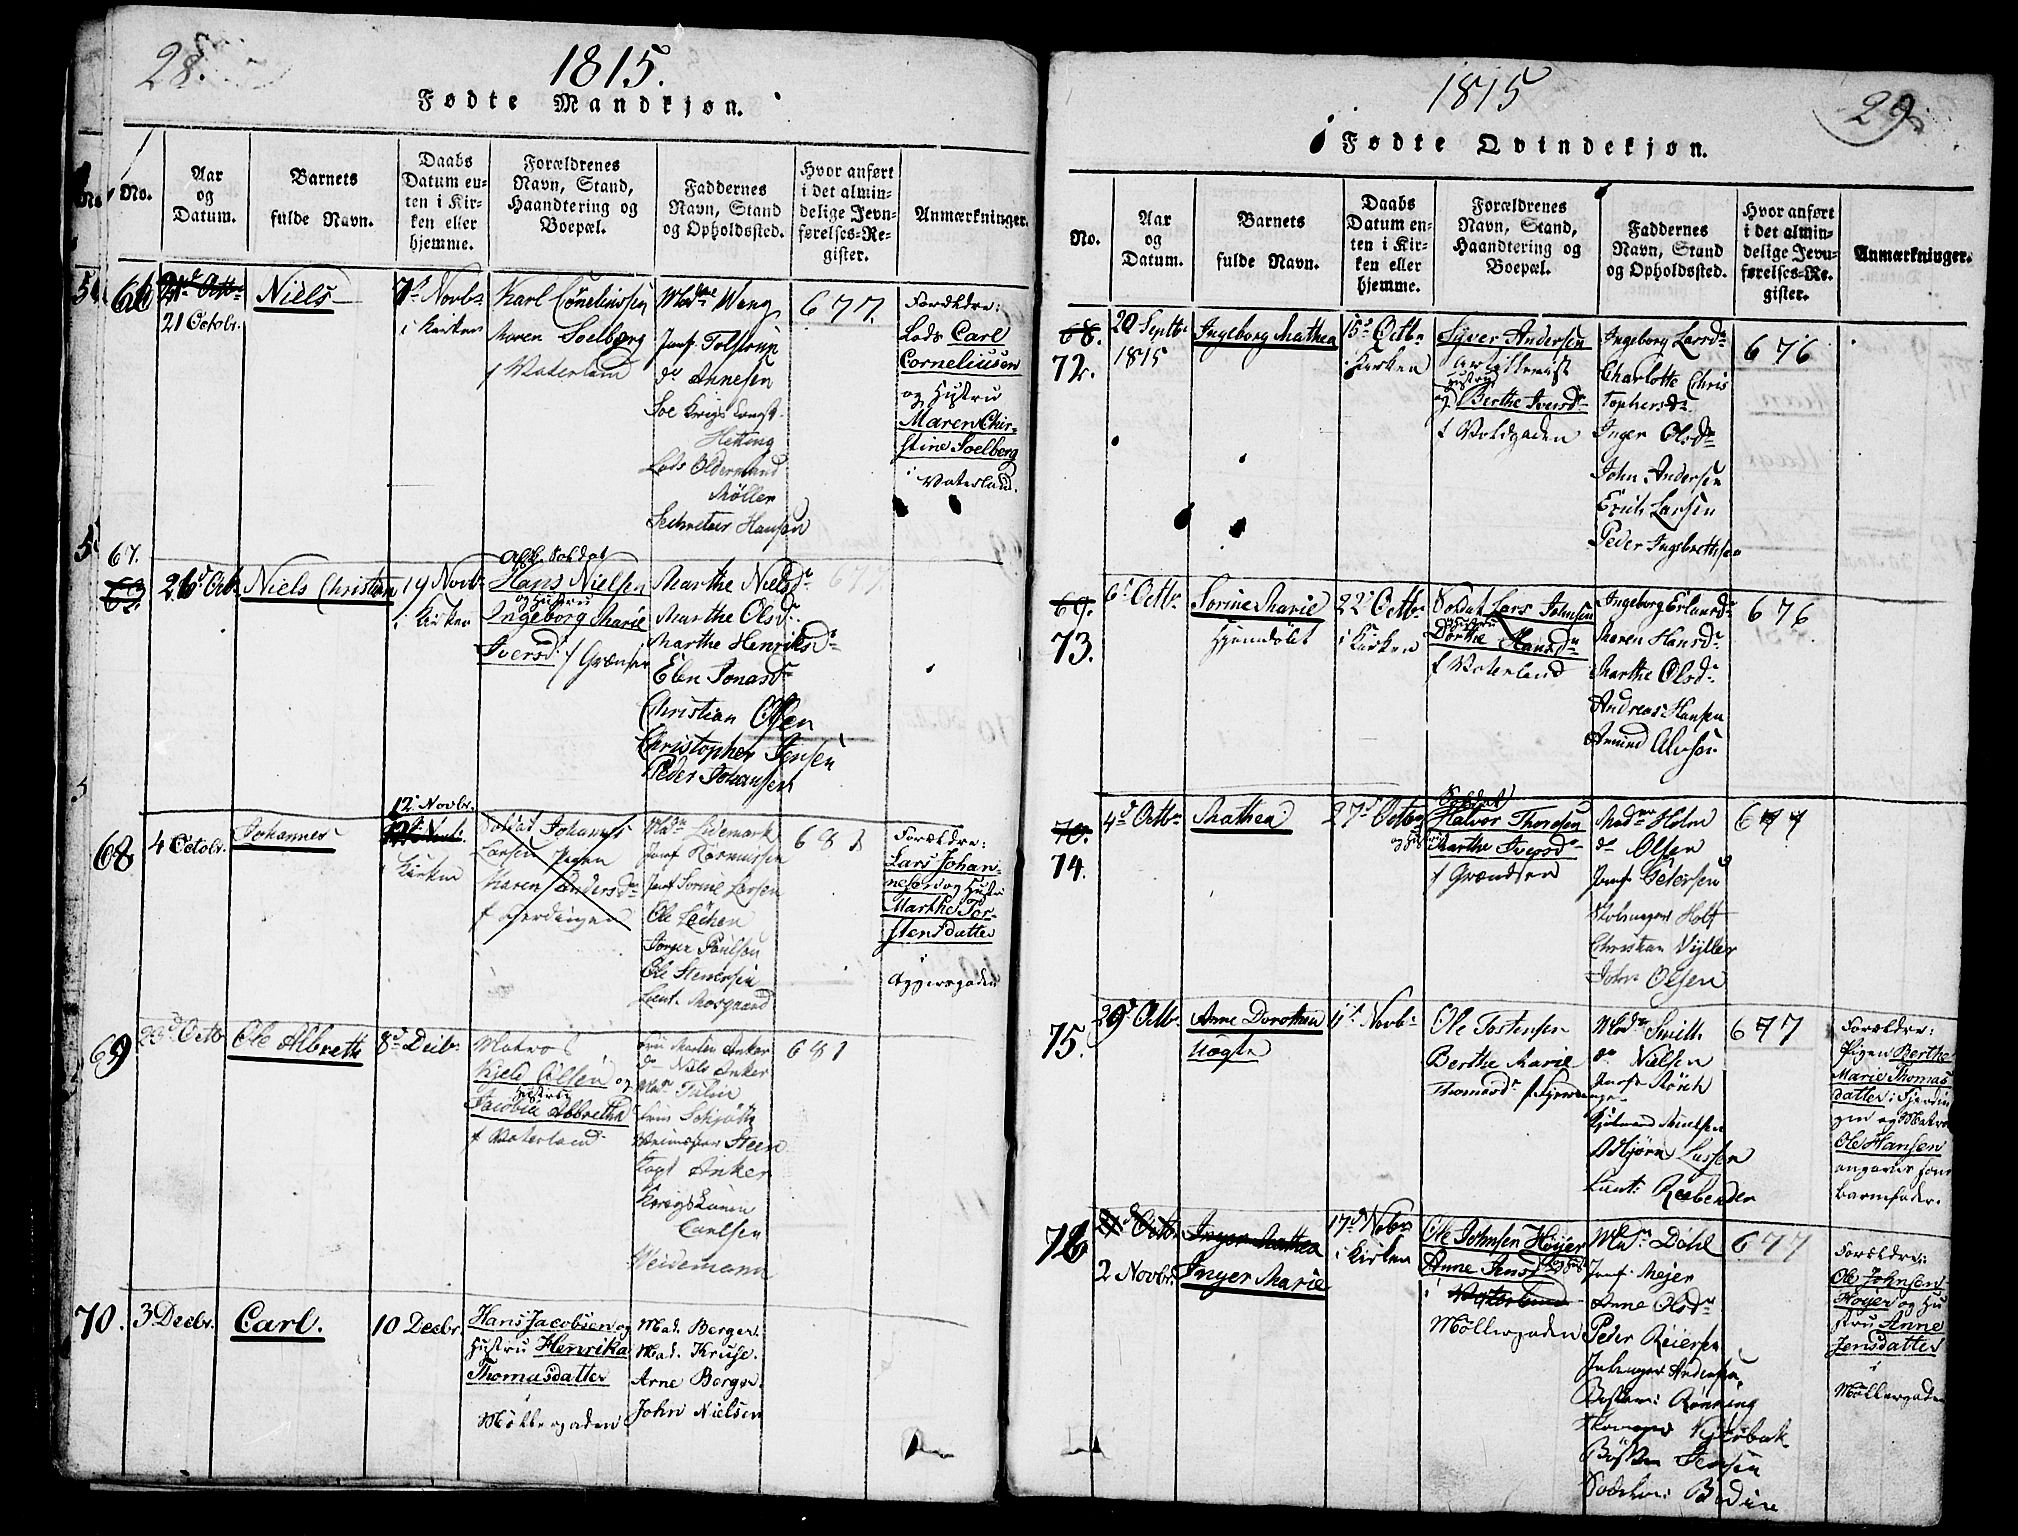 28.
1815.
Fødte Mandkjøn.
No.
Aar
og
Datum.
Barnets
fulde Navn.
Daabs
Datum en-
ten i Kir-
ken eller
hjemme.
Forældrenes
Navn, Stand,
Haandtering og
Boepæl.
Faddernes
Navn, Stand
og Opholdssted.
Hvor anført
i det almin-
delige Jevn-
førelses-Re-
gister.
Anmærkninger.
66
21 Octobr.
Niels
7de Novbr
i Kirken
Karl Corneliussen
Maren Soelberg
f Vaterland
Madme Wang
Jomf. Tolstrup
do Annesen
Hetting
Lods Oldermand
Møller
Hansen
677.
Forældre:
Lods Carl
Corneliusen
og Hustru
Maren Chir-
stine Soelberg
i Vaterland.
67.
26 Octbr.
Niels Christian
19 Novbr
i Kirken
Soldat
Hans Nielsen
og Hustru
Ingeborg Marie
Iversdr f Grænsen
Marthe Nielsdr
Marthe Olsdr
Marthe Henriksdr
Elen Jonasdr
Christian Olsen
Christopher Jensen
Peder Johansen
677
68
4 Octobr.
Johannes
12 Novbr.
i Kirken
Soldat Johannes
Larsen Pigen
Maren Andersdr
f Fjerdingen
Madm Lidemark
Jomf Rasmussen
Jomf Sorine Larsen
Ole Løchen
Torger Poulsen
Ole Steners̈en
Lieut. Mosgaard
681
Forældre:
Lars Johan-
nesen og Hustru
Marthe Tor-
stensdatter
i
Aggersgaden
69
23d Octb
Ole Albreth
8d Decbr
Matros
Kield Olsen og
Hustru
Jacobia Albretha
f Vaterland.
Fru Martin Anker
do Niels Anker
Steen
Anker
Carlsen
Weidemann
681
70.
3 Decbr.
Carl.
10 Decbr.
Hans Jacobsen og
Hustru Henrika
Thomasdatter
i
Møllergaden
Mad. Berger.
Mad. Kruse.
Arne Berger.
John Nielsen
1815
29
Fødte Qvindekjøn.
No.
Aar
og
Datum.
Barnets
fulde Navn.
Daabs
Datum en-
ten i Kir-
ken eller
hjemme.
Forældrenes
Navn, Stand,
Haandtering og
Boepæl.
Faddernes
Navn, Stand
og Opholdssted.
Hvor anført
i det almin-
delige Jevn-
førelses-Re-
gister.
Anmærkninger.
68.
72.
20 Septbr
1815
Ingeborg Mathea
15d Octbr
i Kirken
Syver Andersen
Artillerist
Hustru
og Berthe Iversdr
f Voldgaden
Ingeborg Larsdr
Charlotte Chris
tophersdr
Inger Olsdr
John Andersen
Erich Larsen
Peder Ingebrethsen
676
69.
73.
6d Octbr
Sorine Marie
Hjemdøbt
22d Octbr
i Kirken
Soldat Lars Johnsen
Hustru
Dorthe Hansdr
f Vaterland
Ingeborg Erlandsdr
Maren Hansdr
Marthe Olsdr
Andreas Hansen
Amund
676
70.
74.
4d Octbr
Mathea
27d Octbr
Soldat
Halvor Thoresen
og Hustru
Marthe Iversdr
f Grændsen
Madme Holm
do Olsen
Jomf Petersen
Holst
Christian
John Olsen
677
75.
29d Octbr.
Anne Dorothea
Uægte
11d Novbr
Ole Torstensen
Berthe Marie
Thomasdr f Fjerdingen
Madme Smith
do Nielsen
Jomf Rønch
Asbjørn Larsen
Lieut:
677
Forældre:
Pigen Berthe
Marie Thomas
datter i Fjerdin
gen og Matros
Ole Hansen
angaves som
Barnefader.
76
2 Novbr.
Inger Mathea
Inger Marie
17d Nobr
i Kirken
Ole Johnsen Høyer
Anne Jensdr
i Vaterland
Møllergaden
Madm Dahl
Jomf: Mejer
Anne Olsdr
Peder Reiersen
Andersen
Rønning
Jensen
677
Forældre:
Ole Johnsen
Høyer og Hu
stru Anne
Jensdatter
i
Møllergaden